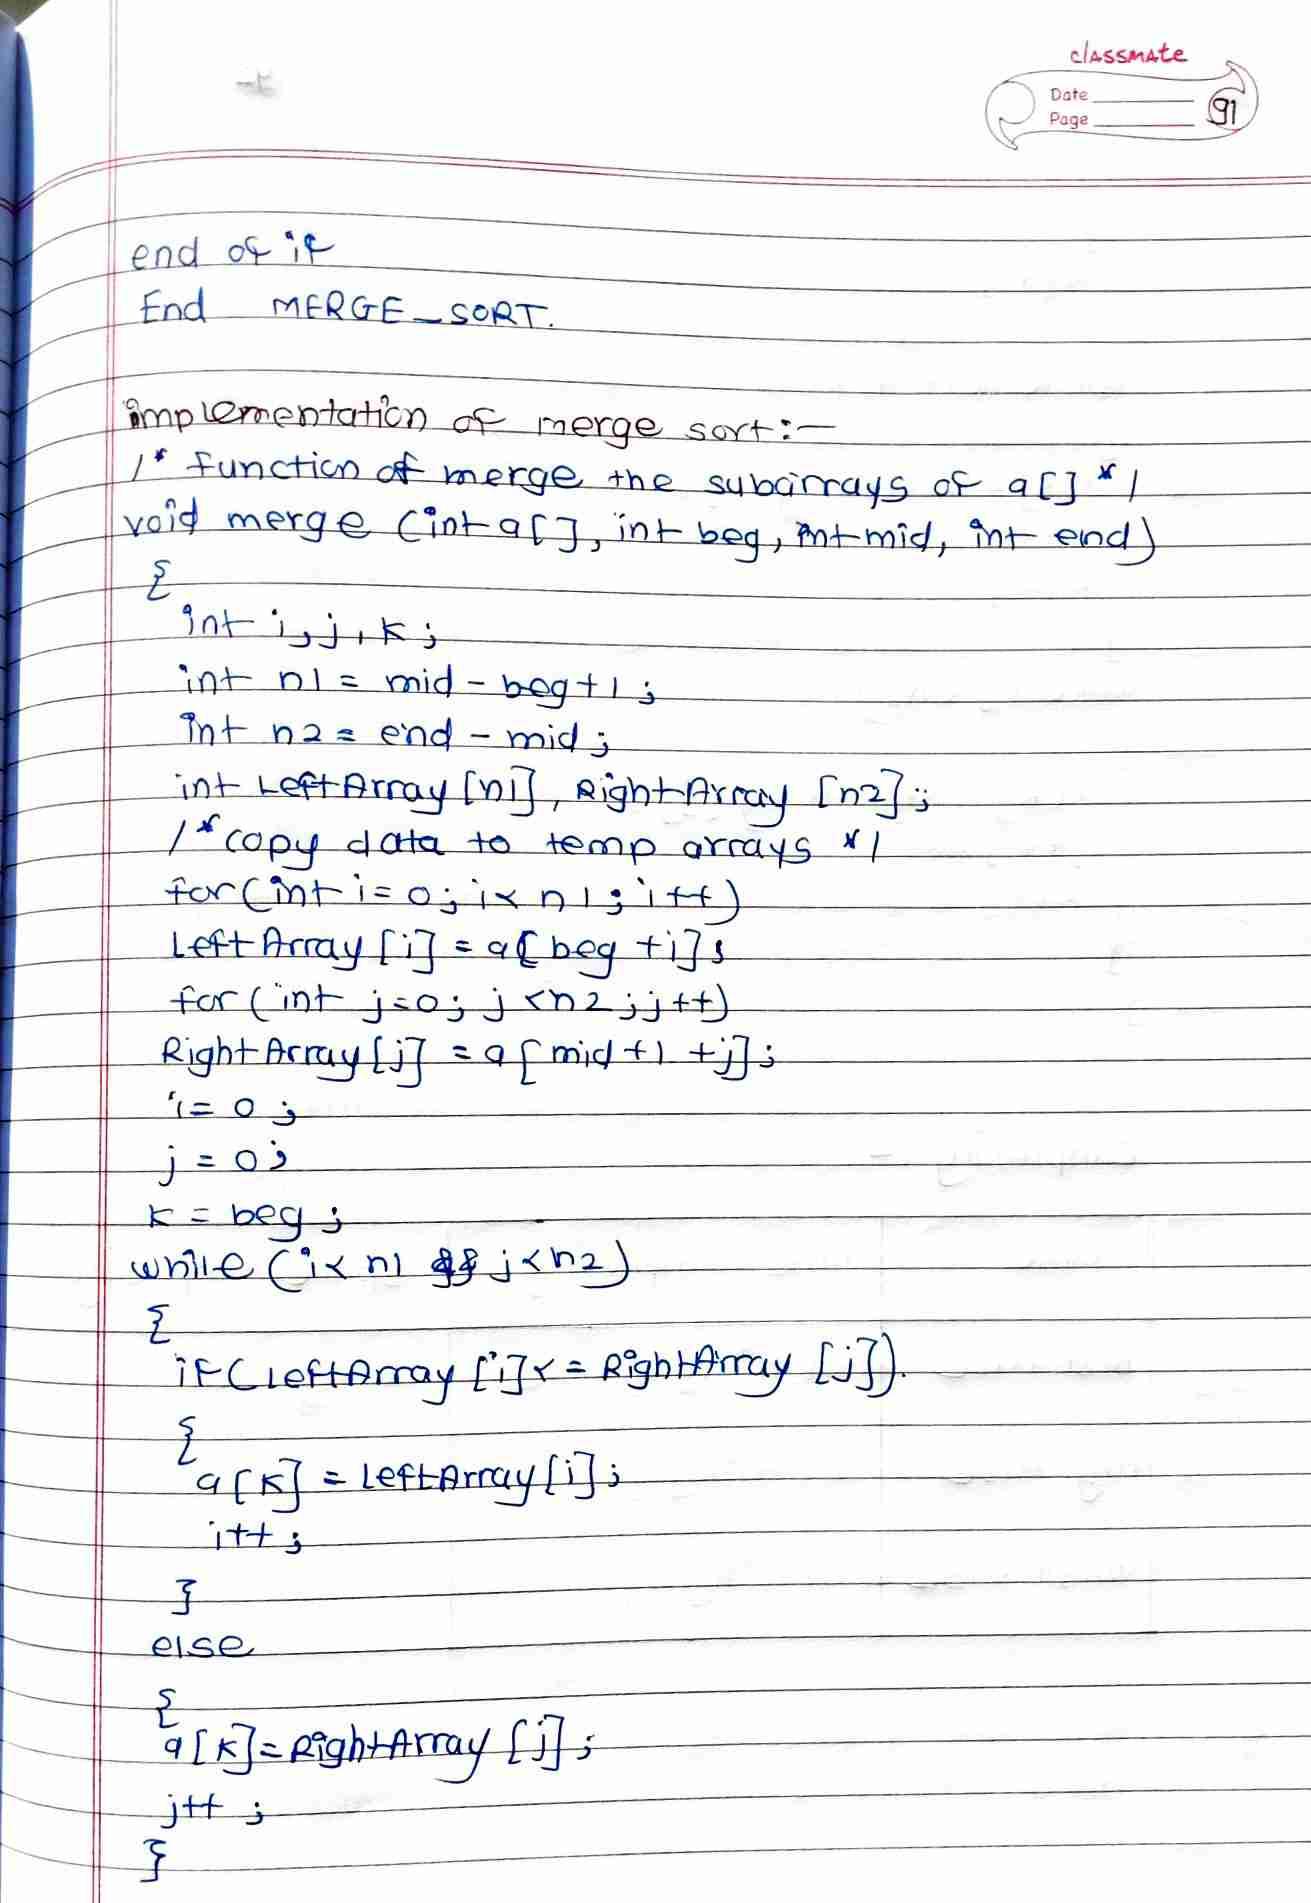 classmate
Date
Page
91
end of if
End MERGE_SORT.
implementation of merge sort:-
/* function of merge the subarrays of a[] */
void merge (int a[], int beg, int mid, int end)
{
int i, j, k;
int n1 = mid - beg+1;
int n2 = end - mid;
int LeftArray [n1], RightArray [n2];
/* copy data to temp arrays */
for(int i = 0; i< n1; i++)
LeftArray [i] = a[beg +i];
for(int j=0; j<n2; j++)
RightArray [j] = a[mid +1 +j];
i = 0;
j = 0;
k = beg;
while (i< n1 && j<n2)
{
if(LeftArray [i]<= RightArray [j]).
{
a[k] = LeftArray[i];
i++;
}
else
{
a[k] = RightArray [j];
j++;
}